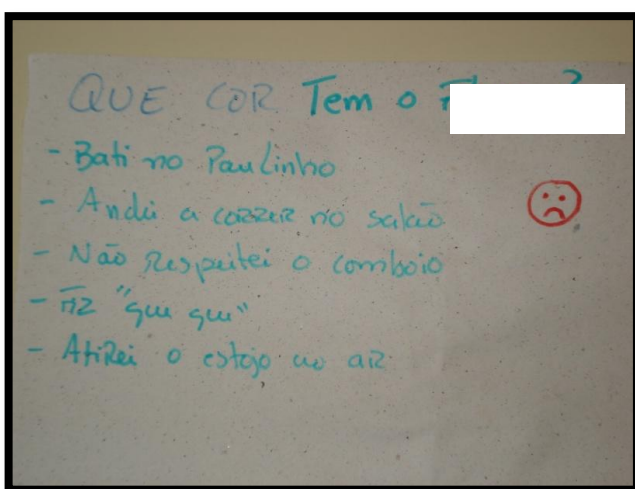 QUE COR Tem o ?
- Bati no Paulinho
- Andei a correr no salão
- Não Respeitei o comboio
- Fiz "gui gui"
- Atirei o estojo ao ar